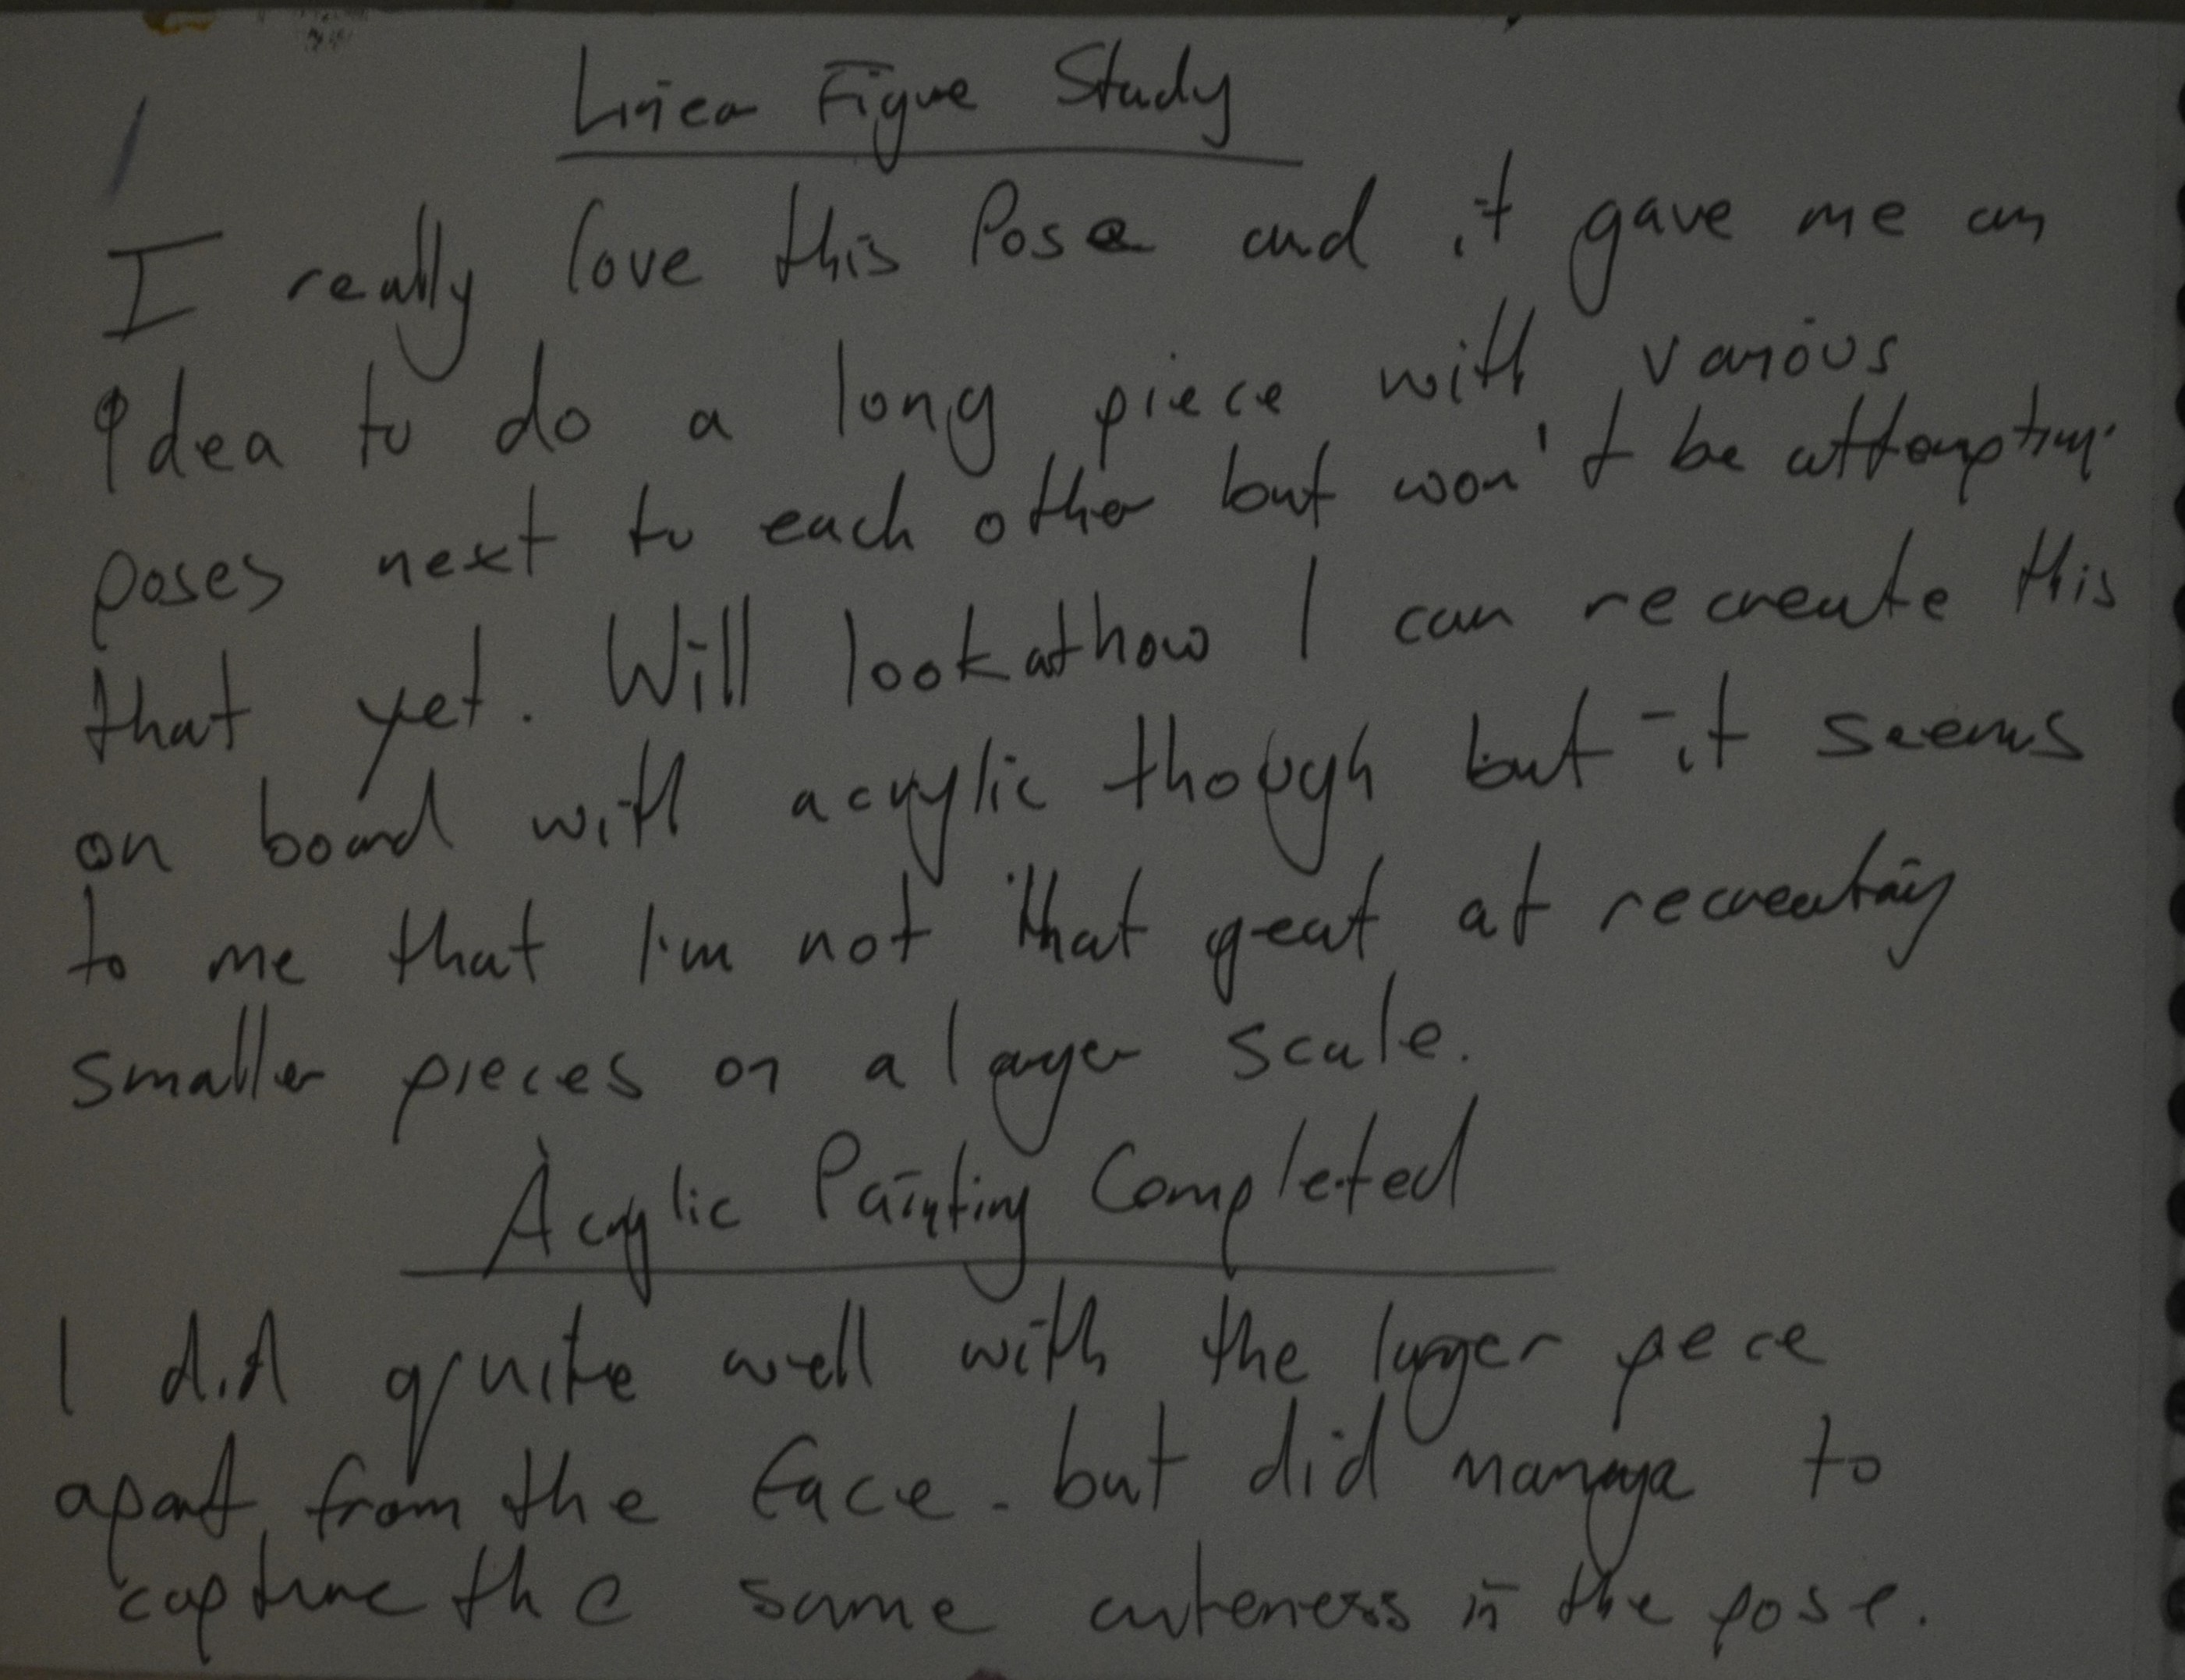 Linear Figure Study
I really love this Pose and it gave me an
Idea to do a long piece with various
poses next to each other but won't be attempting
that yet. Will look at how I can recreate this
on board with acrylic though but it seems
to me that I'm not that great at recreating
smaller pieces on a larger scale.
Acrylic Painting Completed
I did quite well with the larger pece
apart from the face - but did manage to
capture the same cuteness in the pose.